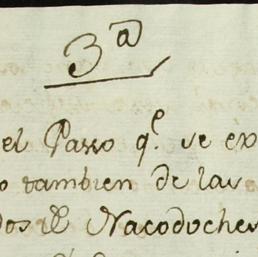 3ª
el Passo qᵉ se ex
o tambien de las
dos Nacodoches